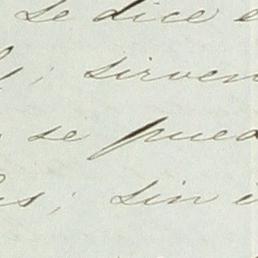 se dice
; sirven
se pued
s; sin